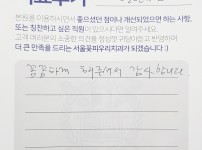 본원을 이용하시면서 좋으셨던 점이나 개선되었으면 하는 사항,
또는 칭찬하고 싶은 직원이 있으시다면 알려주세요.
고객 여러분의 소중한 의견을 정성껏 귀담아듣고 반영하여
더 큰 만족을 드리는 서울꽃피우리치과가 되겠습니다 :)
꼼꼼하게 해주셔서 감사합니다